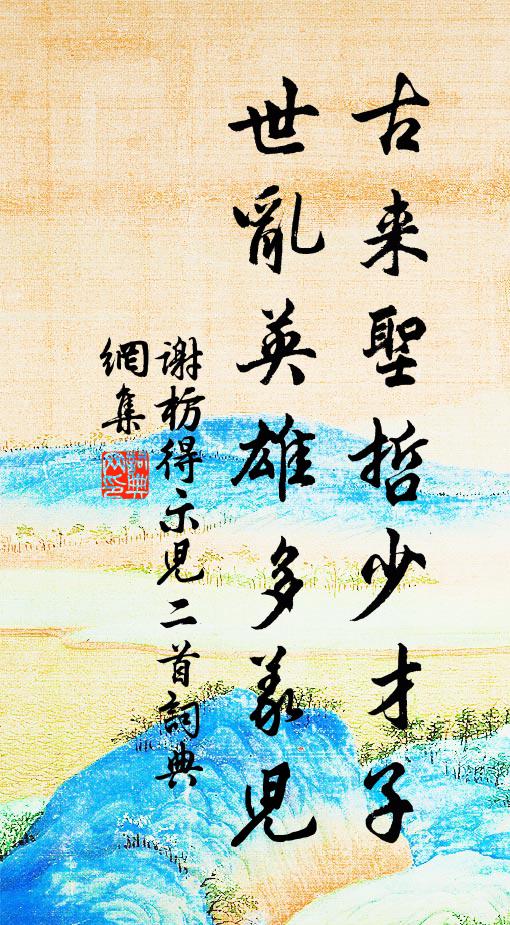 古来聖哲少才子
世亂英雄多義兒
謝枋得示兒二首詞典
網集
詞典